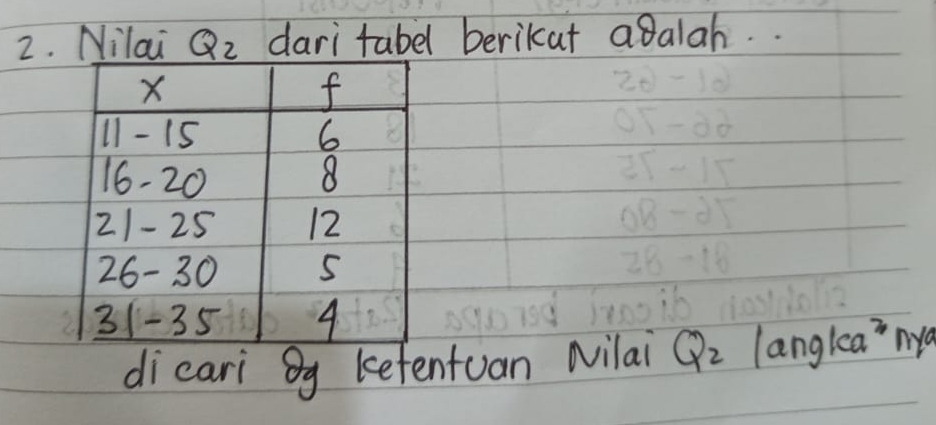 2. Nilai Q2 dari tabel berikut adalah ..
x f
11-15 6
16-20 8
21-25 12
26-30 5
31-35 4
di cari dg ketentuan Nilai Q2 langka² nya